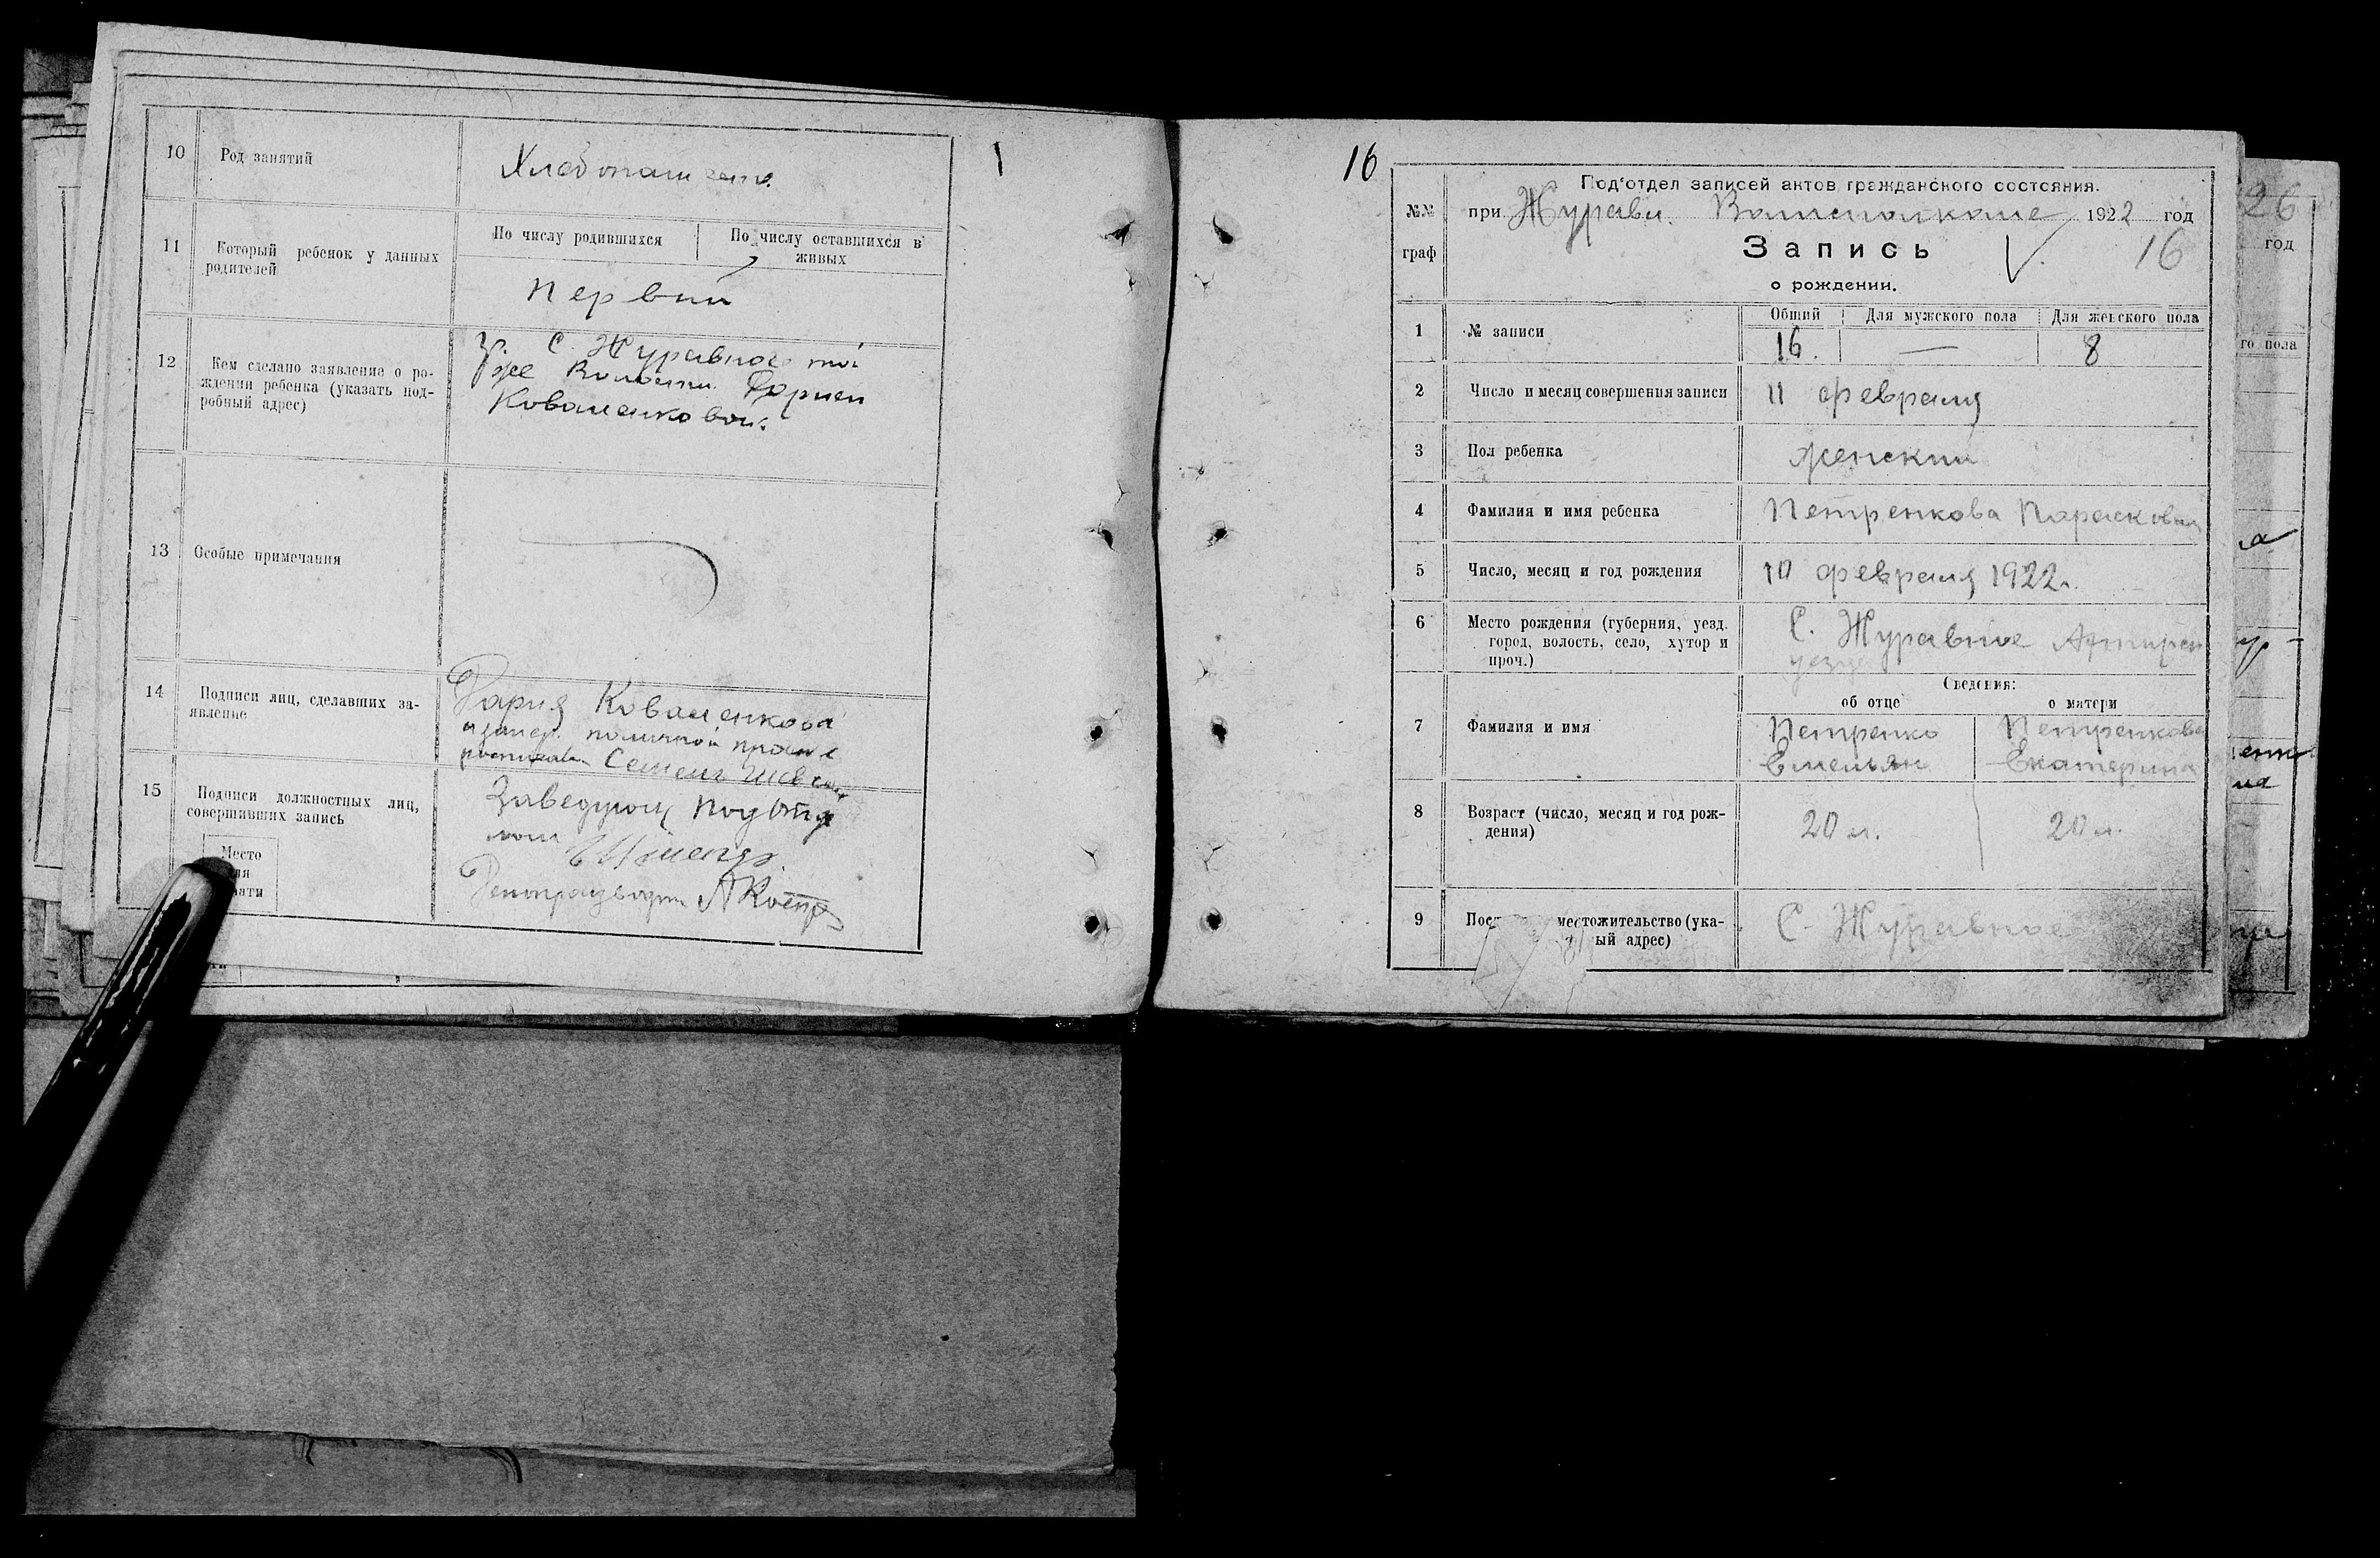 10 Род занятий
Хлебопашество.
1
11 Который ребенок у данных родителей
По числу родившихся
По числу оставшихся в живых
Первый
12 Кем сделано заявление о ро-
ждении ребенка (указать под-
робный адрес)
С. Журавного той
же Волости Дарией
Коваленковой.
13 Особые примечания
14 Подписи лиц, сделавших за-
явление
Дария Коваленкова
Семен
15 Подписи должностных лиц,
совершивших запись
Заведующ Подотде
лом
Делопроизводит
Место
16
№№
граф
Под'отдел записей актов гражданского состояния.
при Журавн. 1922 год
Запись 16
о рождении.
1 № записи
Общий Для мужского пола Для женского пола
16. — 8
2 Число и месяц совершения записи 11 февраля
3 Пол ребенка женский
4 Фамилия и имя ребенка Петренкова Парасковия
5 Число, месяц и год рождения 10 февраля 1922г.
6 Место рождения (губерния, уезд.
город, волость, село, хутор и
проч.)
С. Журавное Ахтырск
уезда
Сведения:
об отце о матери
7 Фамилия и имя
Петренко Петренкова
Емельян Екатерина
8 Возраст (число, месяц и год рож-
дения)
20 л. 20 л.
9 местожительство (ука-
ый адрес)
С. Журавное
26
год
го пола